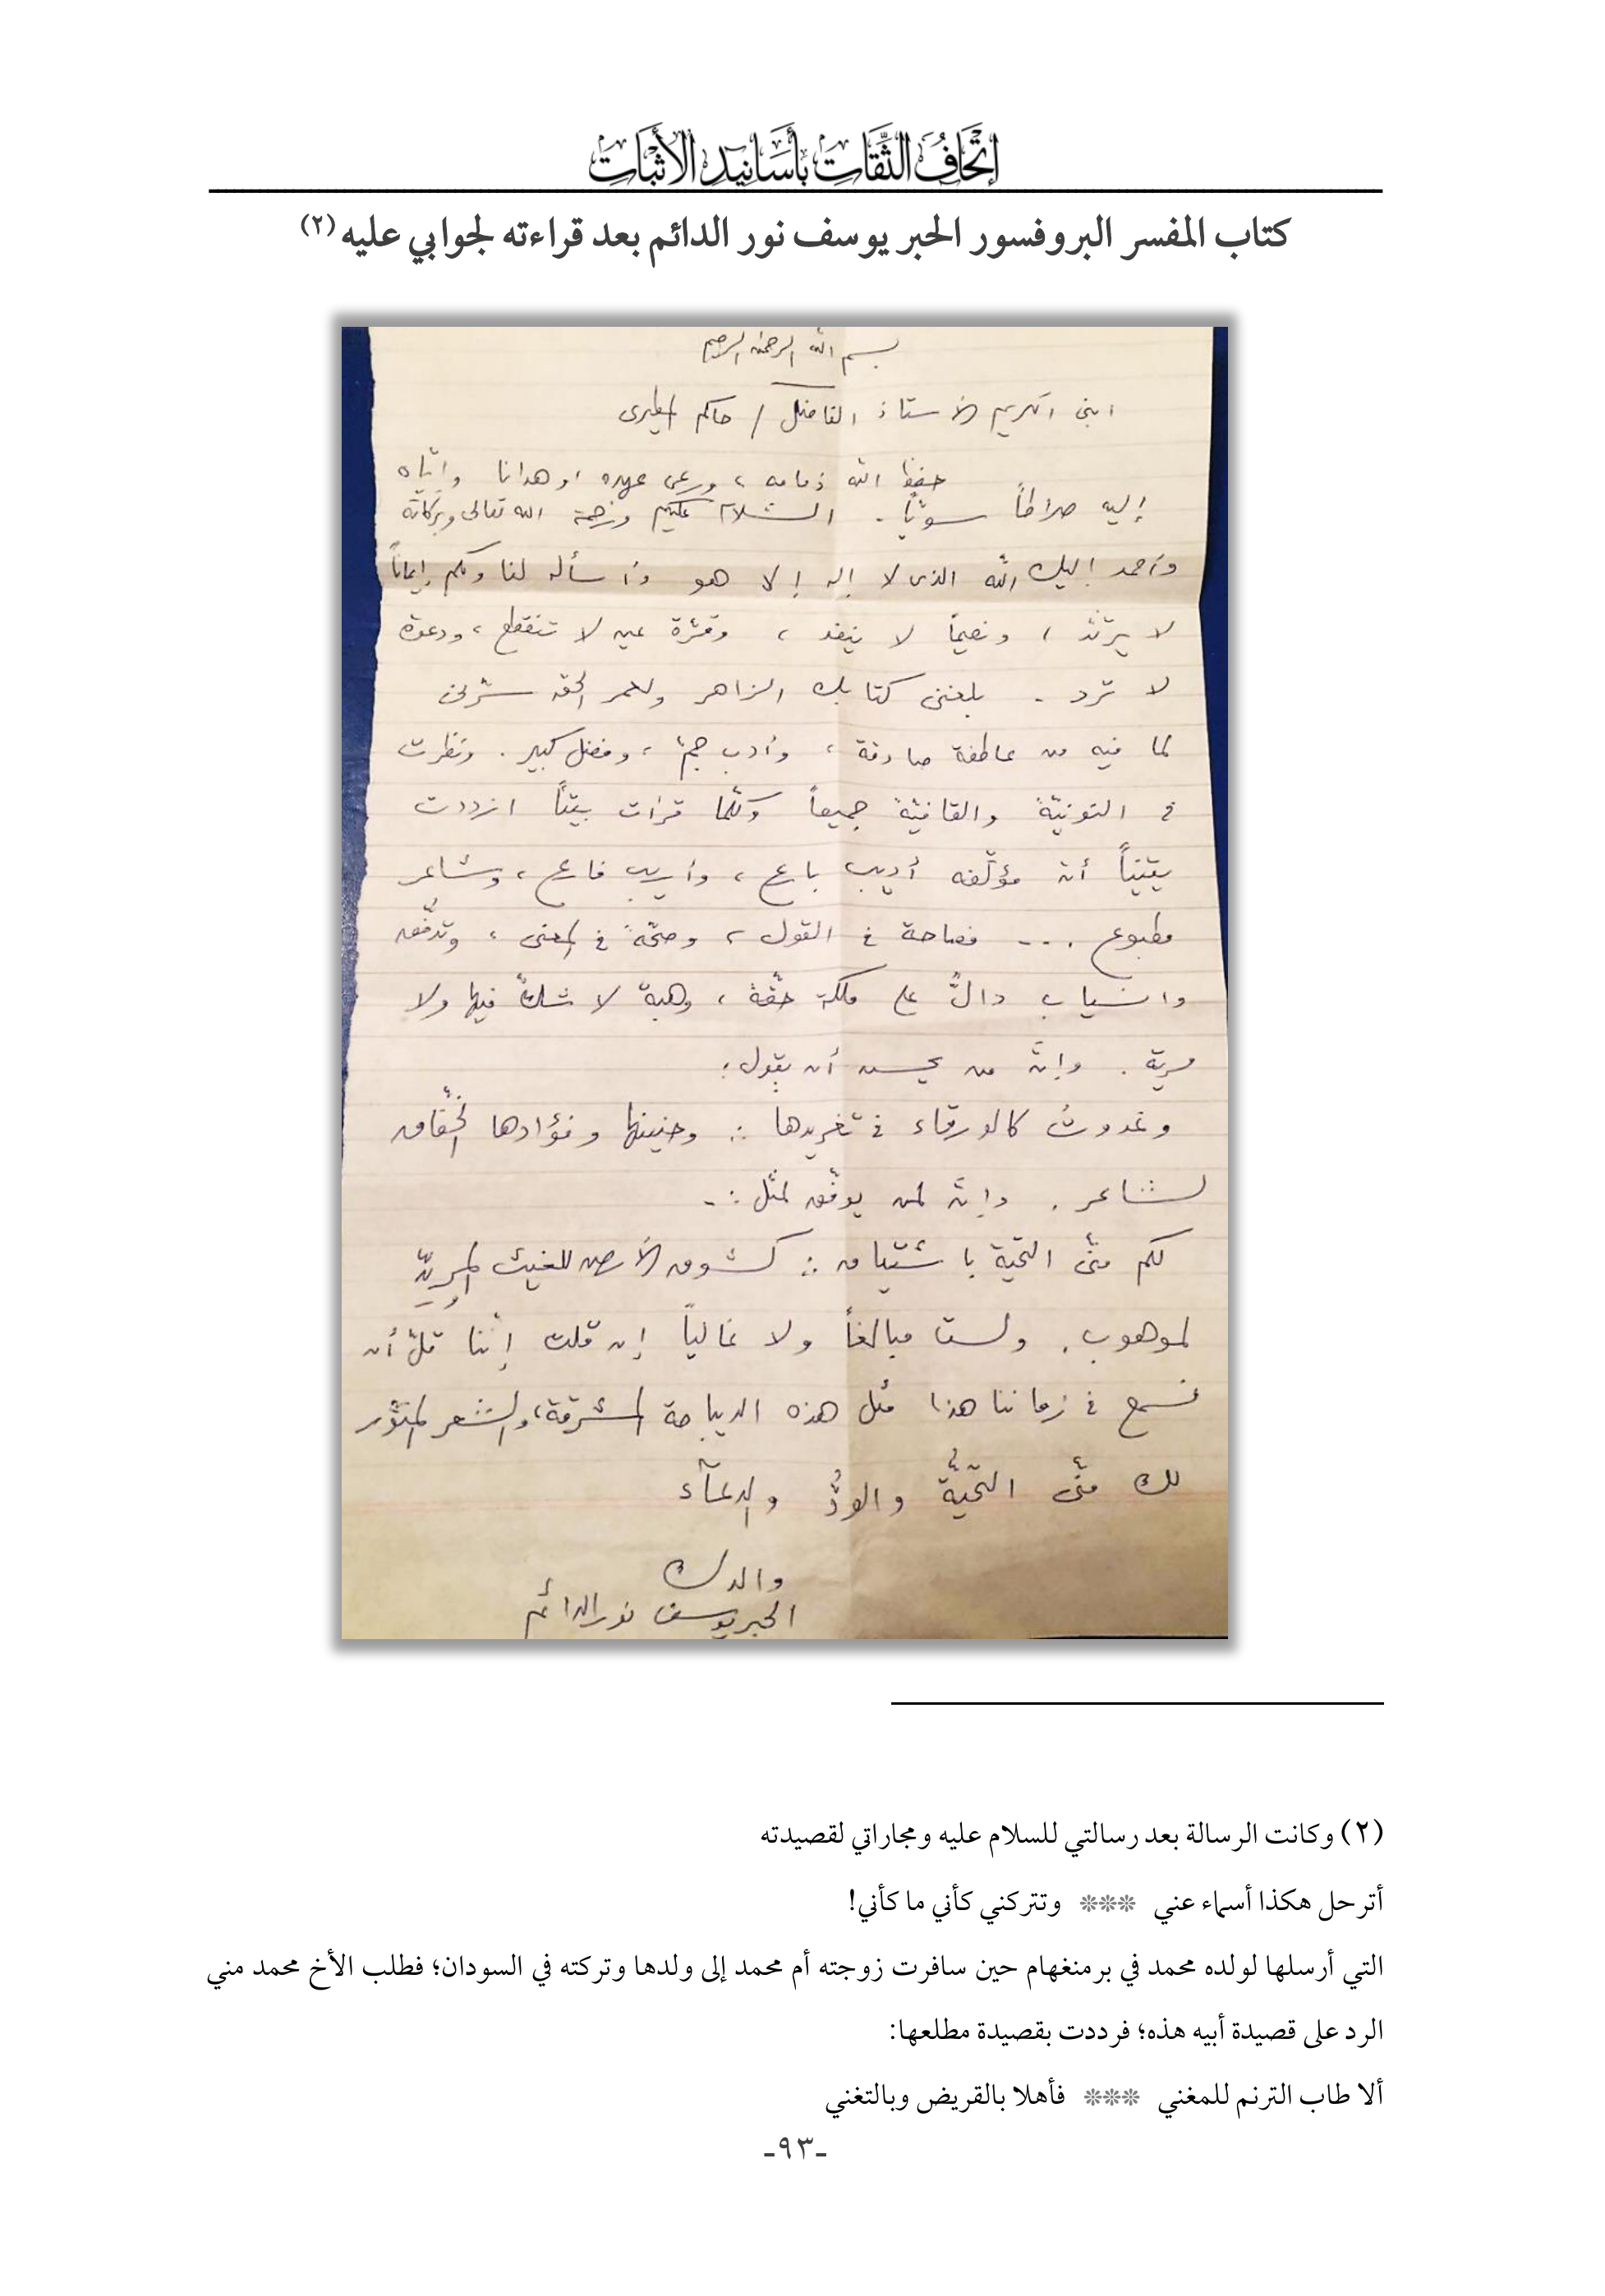 إتحاف الثقات بأسانيد الأثبات
كتاب المفسر البروفسور الحبر يوسف نور الدائم بعد قراءته لجوابي عليه (٢)
بسم الله الرحمن الرحيم
ابنى الكريم الأستاذ الفاضل / حاكم المطيرى
حفظ الله ذمامه ، ورعى عهده ، وهدانا وإيّاه
إليه صراطاً سويّاً . السّلام عليكم ورحمة الله تعالى وبركاته
وأحمد إليك الله الذى لا إله إلا هو وأسأله لنا ولكم إيماناً
لا يرتدّ ، ونعيماً لا ينفد ، وقرّة عين لا تنقطع ، ودعوة
لا تردّ . بلغنى كتابك الزاهر ولعمر الحق سرّنى
لما فيه من عاطفة صادقة ، وأدب جمّ ، وفضل كبير . ونظرت
فى النونيّة والقافيّة جميعاً وكلّما قرأت بيتاً ازددت
يقيناً أن مؤلّفه أديب بارع ، وأريب فارع ، وشاعر
مطبوع ... فصاحة فى القول ، وصحّة فى المعنى ، وتدفّق
وانسياب دالّ على ملكة حقّة ، وهبة لا شكّ فيها ولا
مرية . وإنّ من يحسن أن يقول :
وغدوت كالورقاء فى تغريدها ∴ وحنينها وفؤادها الخفّاق
لشاعر . وإنّ من يوفّق لمثل :-
لكم منّى التحيّة باشتياق ∴ كشوق الأرض للغيث المربّ
لموهوب . ولست مبالغاً ولا غالياً إن قلت إنّنا قلّ أن
نسمع فى زماننا هذا مثل هذه الديباجة المشرقة ، والشعر المؤثّر
لك منّى التحيّة والودّ والدعاء
والدك
الحبر يوسف نور الدائم
(٢) وكانت الرسالة بعد رسالتي للسلام عليه ومجاراتي لقصيدته
أترحل هكذا أسماء عني *** وتتركني كأني ما كأني!
التي أرسلها لولده محمد في برمنغهام حين سافرت زوجته أم محمد إلى ولدها وتركته في السودان؛ فطلب الأخ محمد مني
الرد على قصيدة أبيه هذه؛ فرددت بقصيدة مطلعها:
ألا طاب الترنم للمغني *** فأهلا بالقريض وبالتغني
-٩٣-